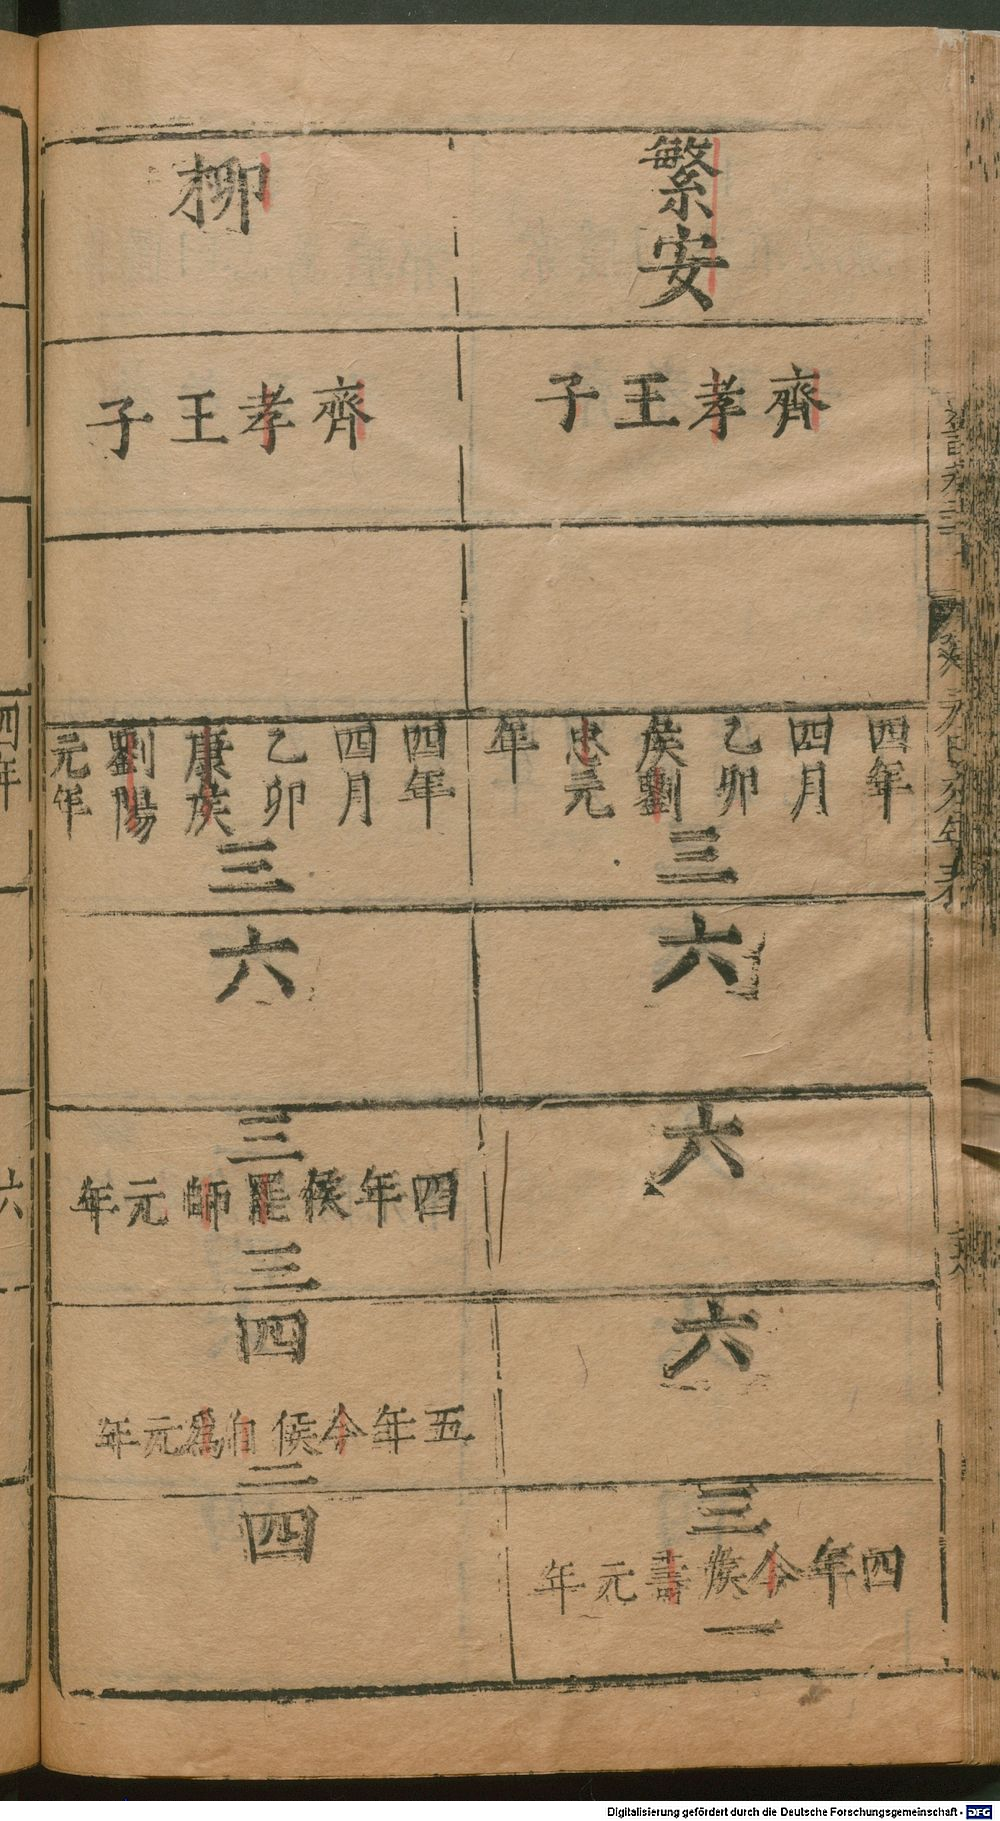 繁安
齊孝王子
四年
四月
乙卯
侯劉
忠元
年
三
六
六
六
三
四年今侯壽元年
一
柳
齊孝王子
四年
四月
乙卯
康侯
劉陽
元年
三
六
三
四年侯罷師元年
三
四
五年今侯自爲元年
二
四
四年
六
Digitalisierung gefördert durch die Deutsche Forschungsgemeinschaft - DFG